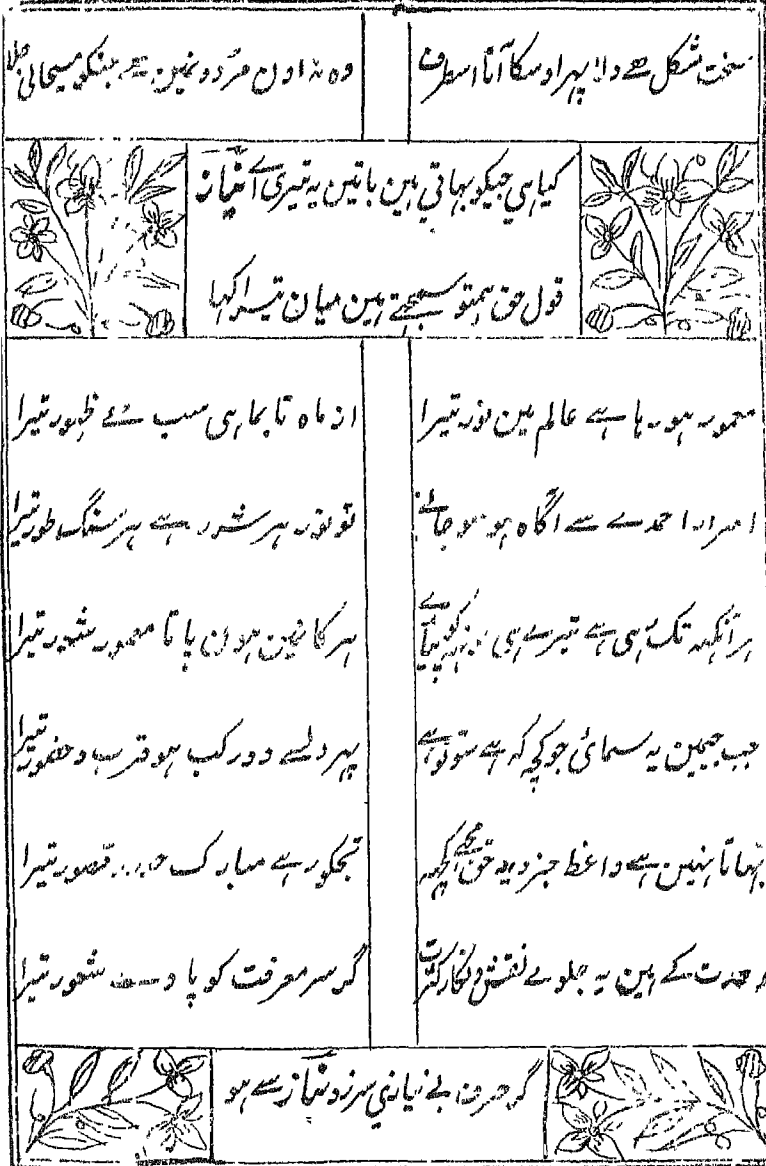 سخت شکل ہے دلا پہر اوسکا آنا اسطرف
وہ نہ اون مردو نمین ہے جنکو مسیحائی جلا
کیا ہی جیکو بہاتی ہین باتین یہ تیری اے نیاز
قول حق ہمتو سمجھتے ہین میان تیرا کہا
معمور ہو رہا ہے عالم مین نور تیرا
از ماہ تا بماہی سب ہے ظہور تیرا
اسرار احمدے سے آگاہ ہو سو جانے
تو نور ہر شرر ہے ہر سنگ طور تیرا
ہر آنکہہ تک رہی ہے تیرے ہی منہہ کو پیارے
ہر کا نمین ہون پاتا معمور شور تیرا
جب جیمین یہ سمائی جو کچہہ کہ ہے سو تو ہے
پہر دلسے دور کب ہو قرب و حضور تیرا
بہاتا نہین ہے واعظ جز دید حق مجھے کچہہ
تجکو رہے مبارک حور و قصور تیرا
وحدت کے ہین یہ جلوے نقش و نگار کثرت
گر سر معرفت کو پاوے شعور تیرا
گر حرف بے نیازی سرزد نیاز سے ہو